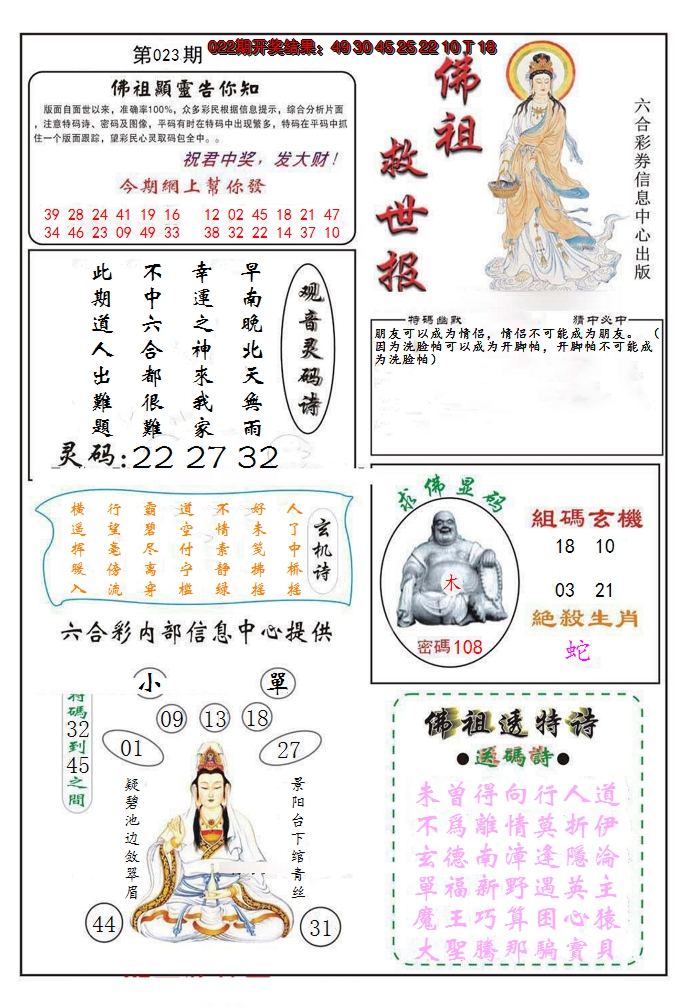 022期开奖结果：49 30 45 25 22 10 T 18
第023期
佛祖顯靈告你知
版面自面世以来，准确率100%，众多彩民根据信息提示，综合分析片面
，注意特码诗、密码及图像，平码有时在特码中出现繁多，特码在平码中抓
住一个版面跟踪，望彩民心灵取码包全中。。
祝君中奖，发大财！
今期網上幫你發
39 28 24 41 19 16 12 02 45 18 21 47
34 46 23 09 49 33 38 32 22 14 37 10
佛祖
救世报
六合彩券信息中心出版
观音灵码诗
早南晚北天無雨
幸運之神來我家
不中六合都很難
此期道人出難題
灵码:22 27 32
特碼幽默
猜中必中
朋友可以成为情侣，情侣不可能成为朋友。（
因为洗脸帕可以成为开脚帕，开脚帕不可能成
为洗脸帕）
玄机诗
人了中桥摇
好未笺拂摇
不情素静绿
道空付宁槛
霸碧尽离穿
行望毫傍流
横遥挥暖入
六合彩内部信息中心提供
求佛显码
木
密碼108
組碼玄機
18 10
03 21
絶殺生肖
蛇
小
單
特碼32到45之間
09
13
18
01
27
景阳台下绾青丝
疑碧池边敛翠眉
44
31
佛祖透特诗
●送碼詩●
未曾得向行人道
不爲離情莫折伊
玄德南漳逢隱淪
單福新野遇英主
魔王巧算困心猿
大聖騰那騙寶貝